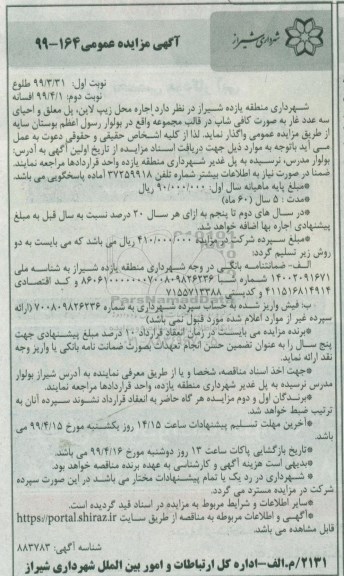 شهرداری شیراز
آگهی مزایده عمومی ۱۶۴-۹۹
نوبت اول: ۹۹/۳/۳۱ طلوع
نوبت دوم: ۹۹/۴/۱ افسانه
شهرداری منطقه یازده شیراز در نظر دارد اجاره محل زیپ لاین، پل معلق و احیای
سه عدد غار به صورت کافی شاپ در قالب مجموعه واقع در بولوار رسول اعظم بوستان سایه
از طریق مزایده عمومی واگذار نماید. لذا از کلیه اشخاص حقیقی و حقوقی دعوت به عمل
می آید باتوجه به موارد ذیل جهت دریافت اسناد مزایده از تاریخ اولین آگهی به آدرس:
بولوار مدرس، نرسیده به پل غدیر شهرداری منطقه یازده واحد قراردادها مراجعه نمایند.
ضمنا در صورت نیاز به اطلاعات بیشتر شماره تلفن ۳۷۲۵۹۹۱۸ آماده پاسخگویی می باشد.
*مبلغ پایه ماهیانه سال اول: ۹۰/۰۰۰/۰۰۰ ریال
*مدت : ۵ سال (۶۰ ماه)
*در سال های دوم تا پنجم به ازای هر سال ۲۰ درصد نسبت به سال قبل به مبلغ
پیشنهادی اجاره بها اضافه خواهد شد.
*مبلغ سپرده شرکت در مزایده ۴۱۰/۰۰۰/۰۰۰ ریال می باشد که می بایست به دو
روش زیر تسلیم گردد:
الف- ضمانتنامه بانکی در وجه شهرداری منطقه یازده شیراز به شناسه ملی
۱۴۰۰۲۰۹۱۶۷۱ شماره شبا و کد اقتصادی
۴۱۱۵۱۶۸۱۴۹۱۴ و کدپستی ۷۱۵۵۷۱۳۳۸۸
ب- فیش واریز شده به حساب سپرده شهرداری به شماره ۷۰۰۸۰۹۸۲۶۲۳۶ (ارائه
سپرده غیر از موارد اعلام شده مورد قبول نمی باشد)
*برنده مزایده می بایست در زمان انعقاد قرارداد ۱۰ درصد مبلغ پیشنهادی جهت
پنج سال را به عنوان تضمین حسن انجام تعهدات بصورت ضمانت نامه بانکی یا واریز وجه
نقد ارائه نماید.
*جهت اخذ اسناد مناقصه، شخصا و یا از طریق معرفی نماینده به آدرس شیراز بولوار
مدرس نرسیده به پل غدیر شهرداری منطقه یازده، واحد قراردادها مراجعه نمایند.
*برندگان اول و دوم مزایده هر گاه حاضر به انعقاد قرارداد نشوند سپرده آنان به
ترتیب ضبط خواهد شد.
*آخرین مهلت تسلیم پیشنهادات ساعت ۱۴/۱۵ روز یکشنبه مورخ ۹۹/۴/۱۵ می
باشد.
*تاریخ بازگشایی پاکات ساعت ۱۳ روز دوشنبه مورخ ۹۹/۴/۱۶ می باشد.
*بدیهی است هزینه آگهی و کارشناسی به عهده برنده مناقصه خواهد بود.
*شهرداری در رد یک یا تمام پیشنهادات مختار می باشد در این صورت سپرده
شرکت در مزایده مسترد می گردد.
*سایر اطلاعات و شرایط مربوط به مزایده در اسناد قید گردیده است.
*آگهی و اطلاعات مربوطه به مناقصه از طریق سایت https://portal.shiraz.ir
قابل مشاهده می باشد.
شناسه آگهی: ۸۸۳۷۸۳
۲۱۳۱/م.الف-اداره کل ارتباطات و امور بین الملل شهرداری شیراز